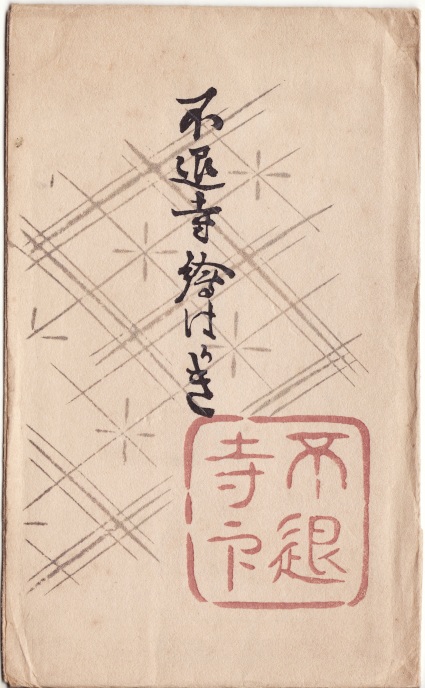 不退寺繪はがき
不退
寺印